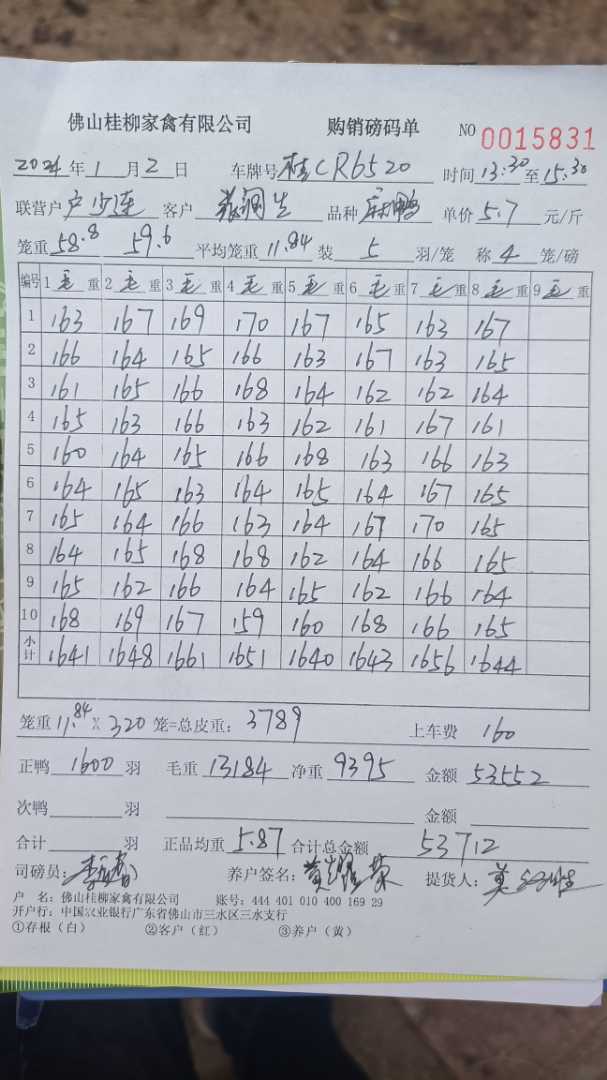 佛山桂柳家禽有限公司 购销磅码单 NO 0015831
2024年1月2日 车牌号 桂CR6520 时间 13:30 至 15:30
联营户 卢少连 客户 品种 麻鸭 单价 5.7 元/斤
笼重 58.8 59.6 平均笼重 11.84 装 5 羽/笼 称 4 笼/磅
编号 1毛重 2毛重 3毛重 4毛重 5毛重 6毛重 7毛重 8毛重 9毛重
1 163 167 169 170 167 165 163 167
2 166 164 165 166 163 167 163 165
3 161 165 166 168 164 162 162 164
4 165 163 166 163 162 161 167 161
5 160 164 165 166 168 163 166 163
6 164 165 163 164 165 164 167 165
7 165 164 166 163 164 167 170 165
8 164 165 168 168 162 164 166 165
9 165 162 166 164 165 162 166 164
10 168 169 167 159 160 168 166 165
小计 1641 1648 1661 1651 1640 1643 1656 1644
笼重 11.84 X 320 笼=总皮重: 3789 上车费 160
正鸭 1600 羽 毛重 13184 净重 9395 金额 53552
次鸭 羽 金额
合计 羽 正品均重 5.87 合计总金额 53712
司磅员: 养户签名: 提货人:
户 名: 佛山桂柳家禽有限公司 账号: 444 401 010 400 169 29
开户行: 中国农业银行广东省佛山市三水区三水支行
①存根（白） ②客户（红） ③养户（黄）